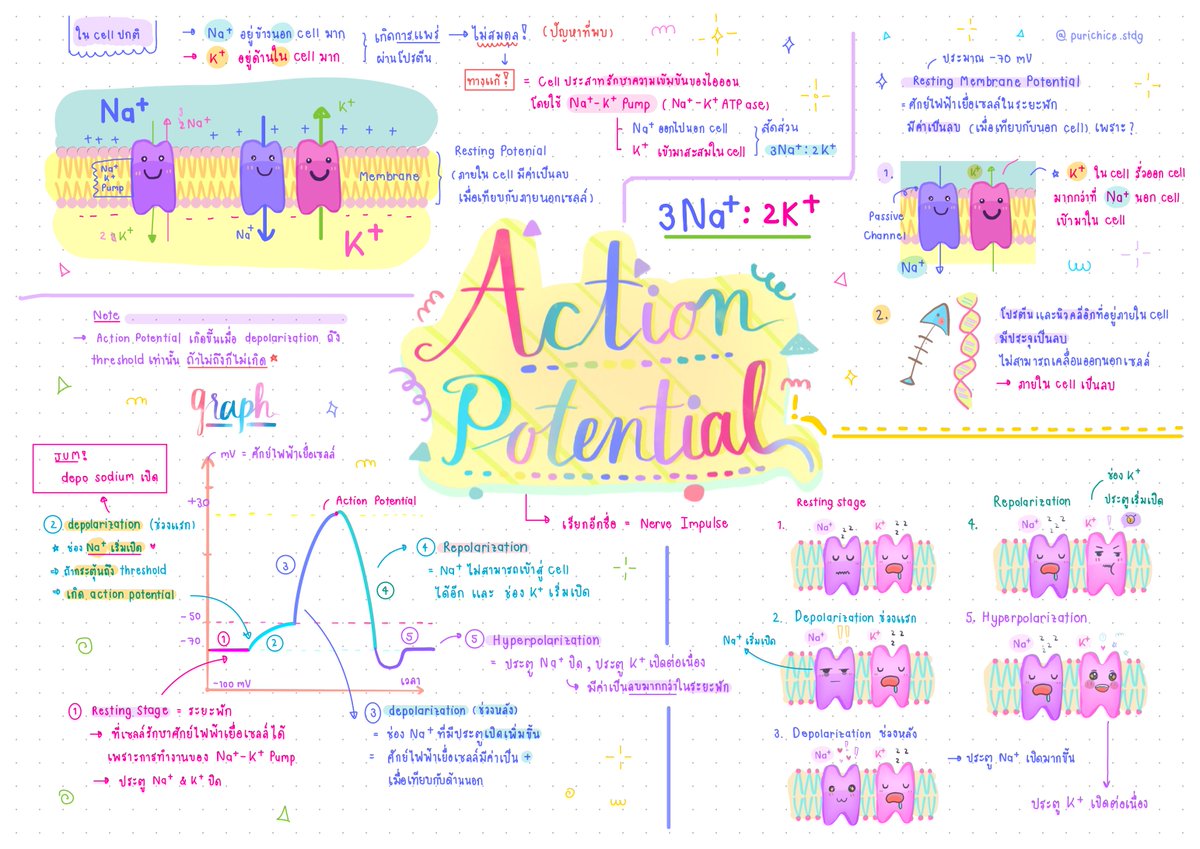 ใน cell ปกติ
→ Na⁺ อยู่ข้างนอก cell มาก
→ K⁺ อยู่ด้านใน cell มาก
เกิดการแพร่
ผ่านโปรตีน
→ ไม่สมดุล! (ปัญหาที่พบ)
ทางแก้! = Cell ประสาทรักษาความเข้มข้นของไอออน
โดยใช้ Na⁺-K⁺ Pump (Na⁺-K⁺ ATPase)
Na⁺ ออกไปนอก cell
K⁺ เข้ามาสะสมใน cell
สัดส่วน
3Na⁺:2K⁺
Na⁺
Na⁺
K⁺
+++ + + + + + +
Na⁺
K⁺
Pump
Membrane
K⁺
Na⁺
K⁺
Resting Potenial
(ภายใน cell มีค่าเป็นลบ
เมื่อเทียบกับภายนอกเซลล์)
3Na⁺: 2K⁺
@purichice.stdg
ประมาณ -70 mV
Resting Membrane Potential
= ศักย์ไฟฟ้าเยื่อเซลล์ในระยะพัก
มีค่าเป็นลบ (เมื่อเทียบกับนอก cell) เพราะ?
1.
K⁺
Passive
Channel
Na⁺
★ K⁺ ใน cell รั่วออก cell
มากกว่าที่ Na⁺ นอก cell
เข้ามาใน cell
2.
โปรตีน และนิวคลีอิกที่อยู่ภายใน cell
มีประจุเป็นลบ
ไม่สามารถเคลื่อนออกนอกเซลล์
→ ภายใน cell เป็นลบ
Note
→ Action Potential เกิดขึ้นเมื่อ depolarization ถึง
threshold เท่านั้น ถ้าไม่ถึงก็ไม่เกิด ★
Action
Potential
!
→ เรียกอีกชื่อ = Nerve Impulse
graph
mV = ศักย์ไฟฟ้าเยื่อเซลล์
+30
-50
-70
-100 mV
เวลา
Action Potential
1
2
3
4
5
JUM!
depo sodium เปิด
② depolarization (ช่วงแรก)
★ ช่อง Na⁺ เริ่มเปิด ♥
⇒ ถ้ากระตุ้นถึง threshold
⇒ เกิด action potential
④ Repolarization
= Na⁺ ไม่สามารถเข้าสู่ Cell
ได้อีก และ ช่อง K⁺ เริ่มเปิด
⑤ Hyperpolarization
= ประตู Na⁺ ปิด, ประตู K⁺ เปิดต่อเนื่อง
→ มีค่าเป็นลบมากกว่าในระยะพัก
① Resting Stage = ระยะพัก
→ ที่เซลล์รักษาศักย์ไฟฟ้าเยื่อเซลล์ได้
เพราะการทำงานของ Na⁺-K⁺ Pump
→ ประตู Na⁺ & K⁺ ปิด
③ depolarization (ช่วงหลัง)
= ช่อง Na⁺ ที่มีประตูเปิดเพิ่มขึ้น
= ศักย์ไฟฟ้าเยื่อเซลล์มีค่าเป็น +
เมื่อเทียบกับด้านนอก
Resting stage
1.
Na⁺ zzz K⁺ zzz
2. Depolarization ช่วงแรก
Na⁺ เริ่มเปิด
Na⁺ !! K⁺ zzz
3. Depolarization ช่วงหลัง
Na⁺ K⁺ zzz
→ ประตู Na⁺ เปิดมากขึ้น
Repolarization
4.
ช่อง K⁺
ประตูเริ่มเปิด
Na⁺ zzz K⁺ !
5. Hyperpolarization
Na⁺ zzz K⁺
ประตู K⁺ เปิดต่อเนื่อง